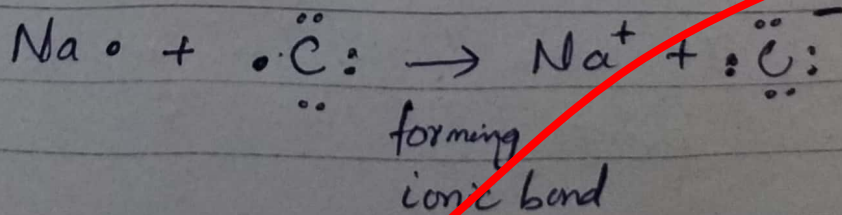 Na • + •C̈: → Na⁺ + :C̈:⁻
forming
ionic bond